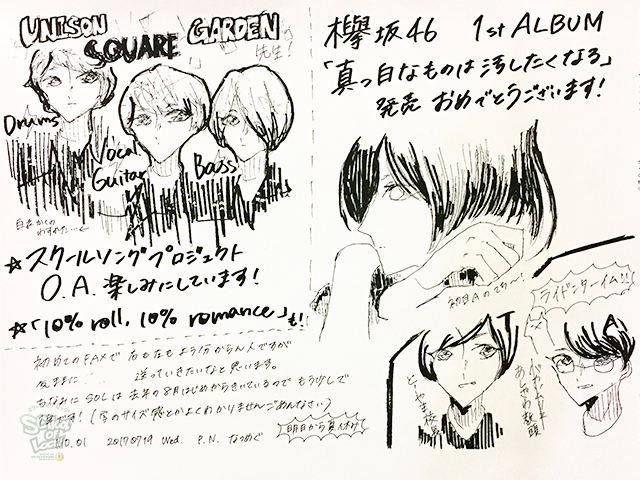 UNISON SQUARE GARDEN
先生!
Drums
Vocal
Guitar
Bass
☆スクールソングプロジェクト
O.A.楽しみにしています!
☆「10% roll, 10% romance」も!
初めてのFAXで 右も左もよう分からん人ですが
送っていきたいなと思います。
ちなみに SOLは去年の8月はじめからきいているので もう少しで
です!(字のサイズ感とかよくわかりませんごめんなさい)
NO.01 2017.07.19 Wed. P.N. なつめぐ
明日から夏休み
欅坂46 1st ALBUM
「真っ白なものは汚したくなる」
発売 おめでとうございます!
初回Aのてち〜!
ライドンターイム!!
とーやま校長
あしざわ教頭